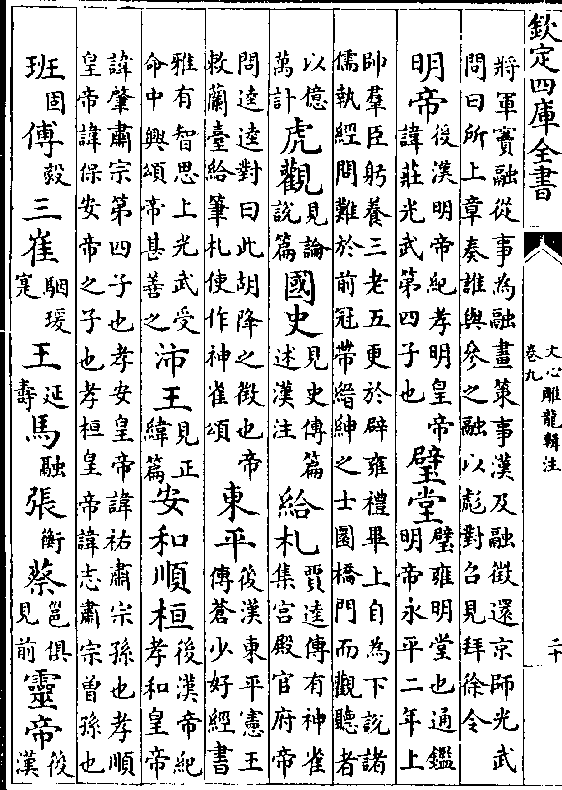 欽定四庫全書
文心雕龍輯注
卷九
二十
將軍竇融從事為融畫策事漢及融徵還京師光武
問曰所上章奏誰與參之融以彪對召見拜徐令
明帝後漢明帝紀孝明皇帝諱莊光武第四子也璧堂璧雍明堂也通鑑明帝永平二年上
帥羣臣躬養三老五更於辟雍禮畢上自為下説諸
儒執經問難於前冠帶縉紳之士圜橋門而觀聽者
以億萬計虎觀見論説篇國史見史傳篇述漢注給札賈逵傳有神雀集宮殿官府帝
問逵逵對曰此胡降之徵也帝敕蘭臺給筆札使作神雀頌東平後漢東平憲王傳蒼少好經書
雅有智思上光武受命中興頌帝甚善之沛王見正緯篇安和順桓後漢帝紀孝和皇帝
諱肇肅宗第四子也孝安皇帝諱祐肅宗孫也孝順
皇帝諱保安帝之子也孝桓皇帝諱志肅宗曾孫也
班固傅毅三崔駰瑗寔王延壽馬融張衡蔡邕俱見前靈帝後漢